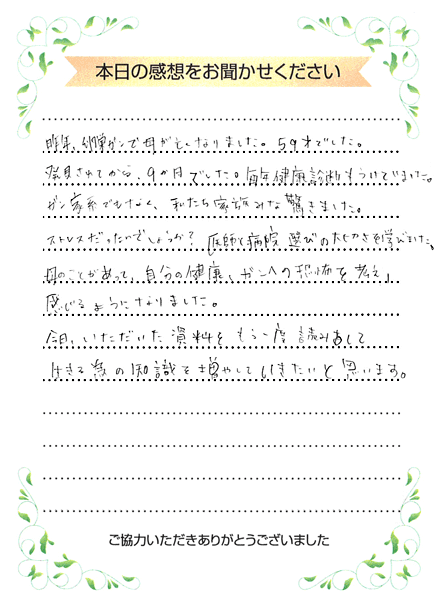 本日の感想をお聞かせください
昨年、卵巣ガンで母が亡くなりました。59才でした。
発見されてから、9か月でした。毎年健康診断もうけていました。
ガン家系でもなく、私たち家族みな驚きました。
ストレスだったのでしょうか? 医師と病院選びの大切さを学びました。
母のことがあって、自分の健康、ガンへの恐怖を考え、
感じるようになりました。
今日、いただいた資料をもう一度読みあして
生きる為の知識を増やしていきたいと思います。
ご協力いただきありがとうございました